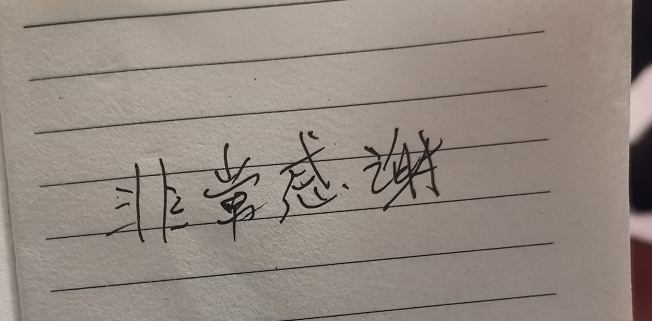 非常感谢